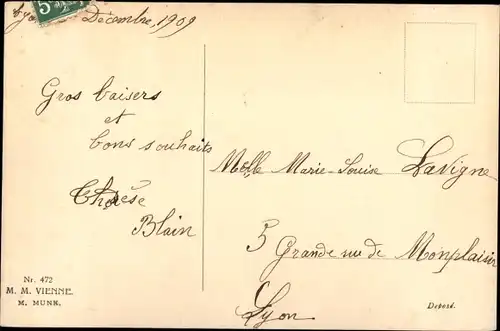 Lyon Décembre, 1909
5
Gros baisers
et
bons souhaits
Thérèse
Blain
Melle Marie-Louise Lavigne
5 Grande rue de Monplaisir
Lyon
Nr. 472
M. M. VIENNE.
M. MUNK.
Déposé.